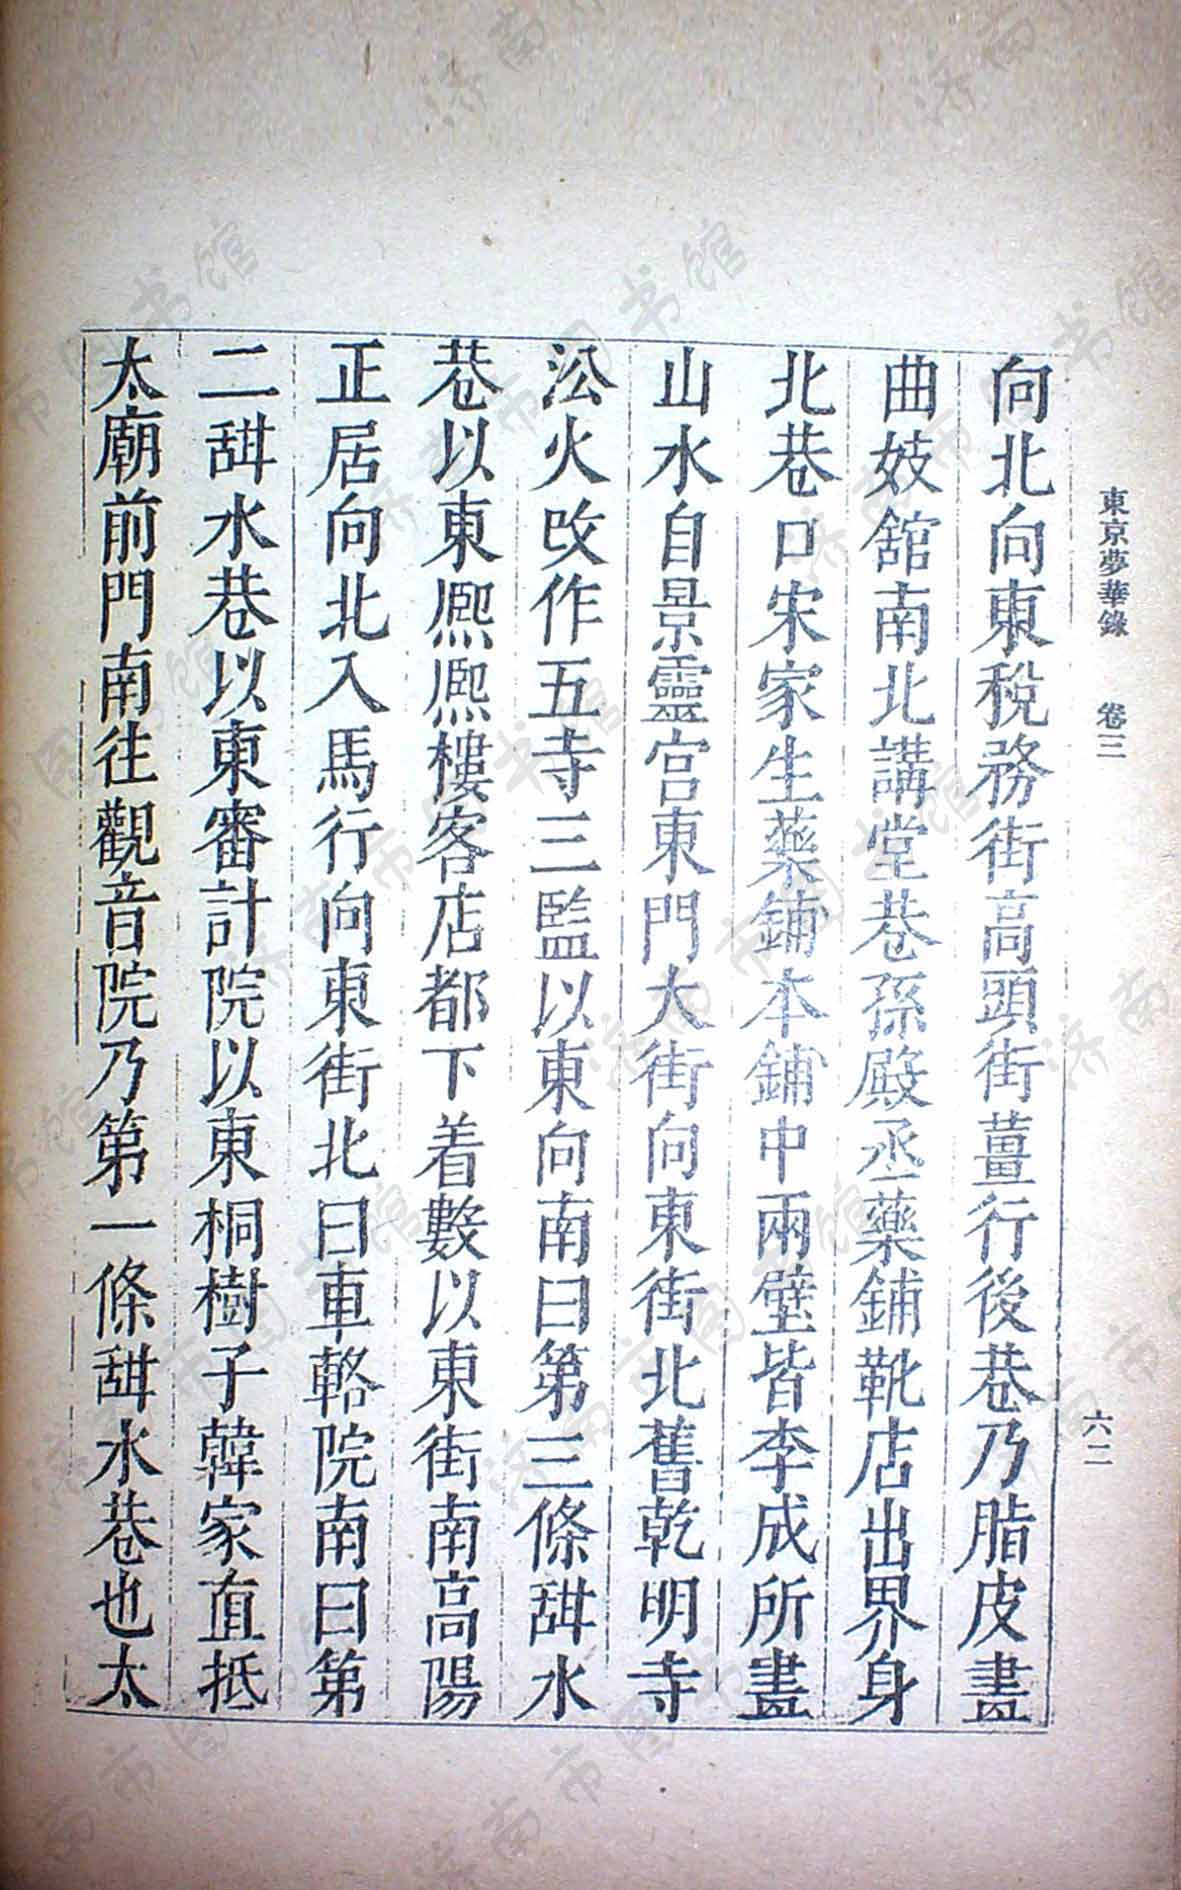 東京夢華錄 卷三 六二
向北向東稅務街高頭街薑行後巷乃脂皮畫
曲妓舘南北講堂巷孫殿丞藥鋪靴店出界身
北巷口宋家生藥鋪本鋪中兩壁皆李成所畫
山水自景靈宮東門大街向東街北舊乾明寺
沿火改作五寺三監以東向南曰第三條甜水
巷以東熙熙樓客店都下着數以東街南高陽
正居向北入馬行向東街北曰車輅院南曰第
二甜水巷以東審計院以東桐樹子韓家直抵
太廟前門南往觀音院乃第一條甜水巷也太
济南市图书馆